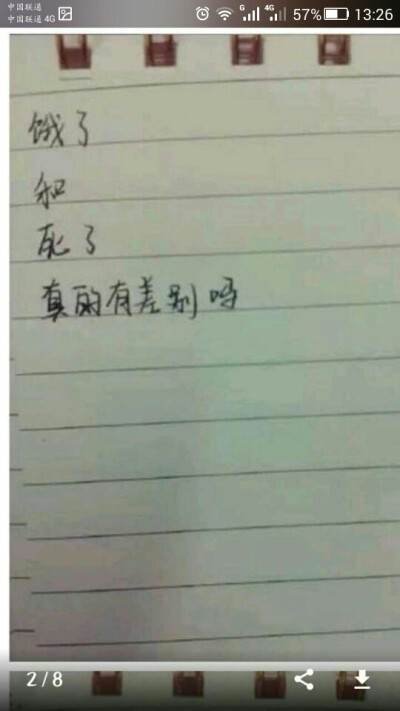 中国联通
中国联通 4G
G
4G
57%
13:26
饿了
和
死了
真的有差别吗
2/8